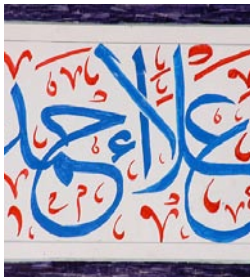 علاء احمد